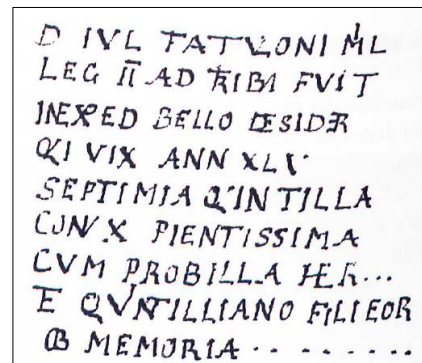 D IVL TATVLONI ML
LEG II AD TRIBI FVIT
INEXPED BELLO DESIDER
QI VIX ANN XLV
SEPTIMIA QINTILLA
CONVX PIENTISSIMA
CVM PROBILLA HER...
E QVNTILLIANO FILI EOR
OB MEMORIA . . . . . . .